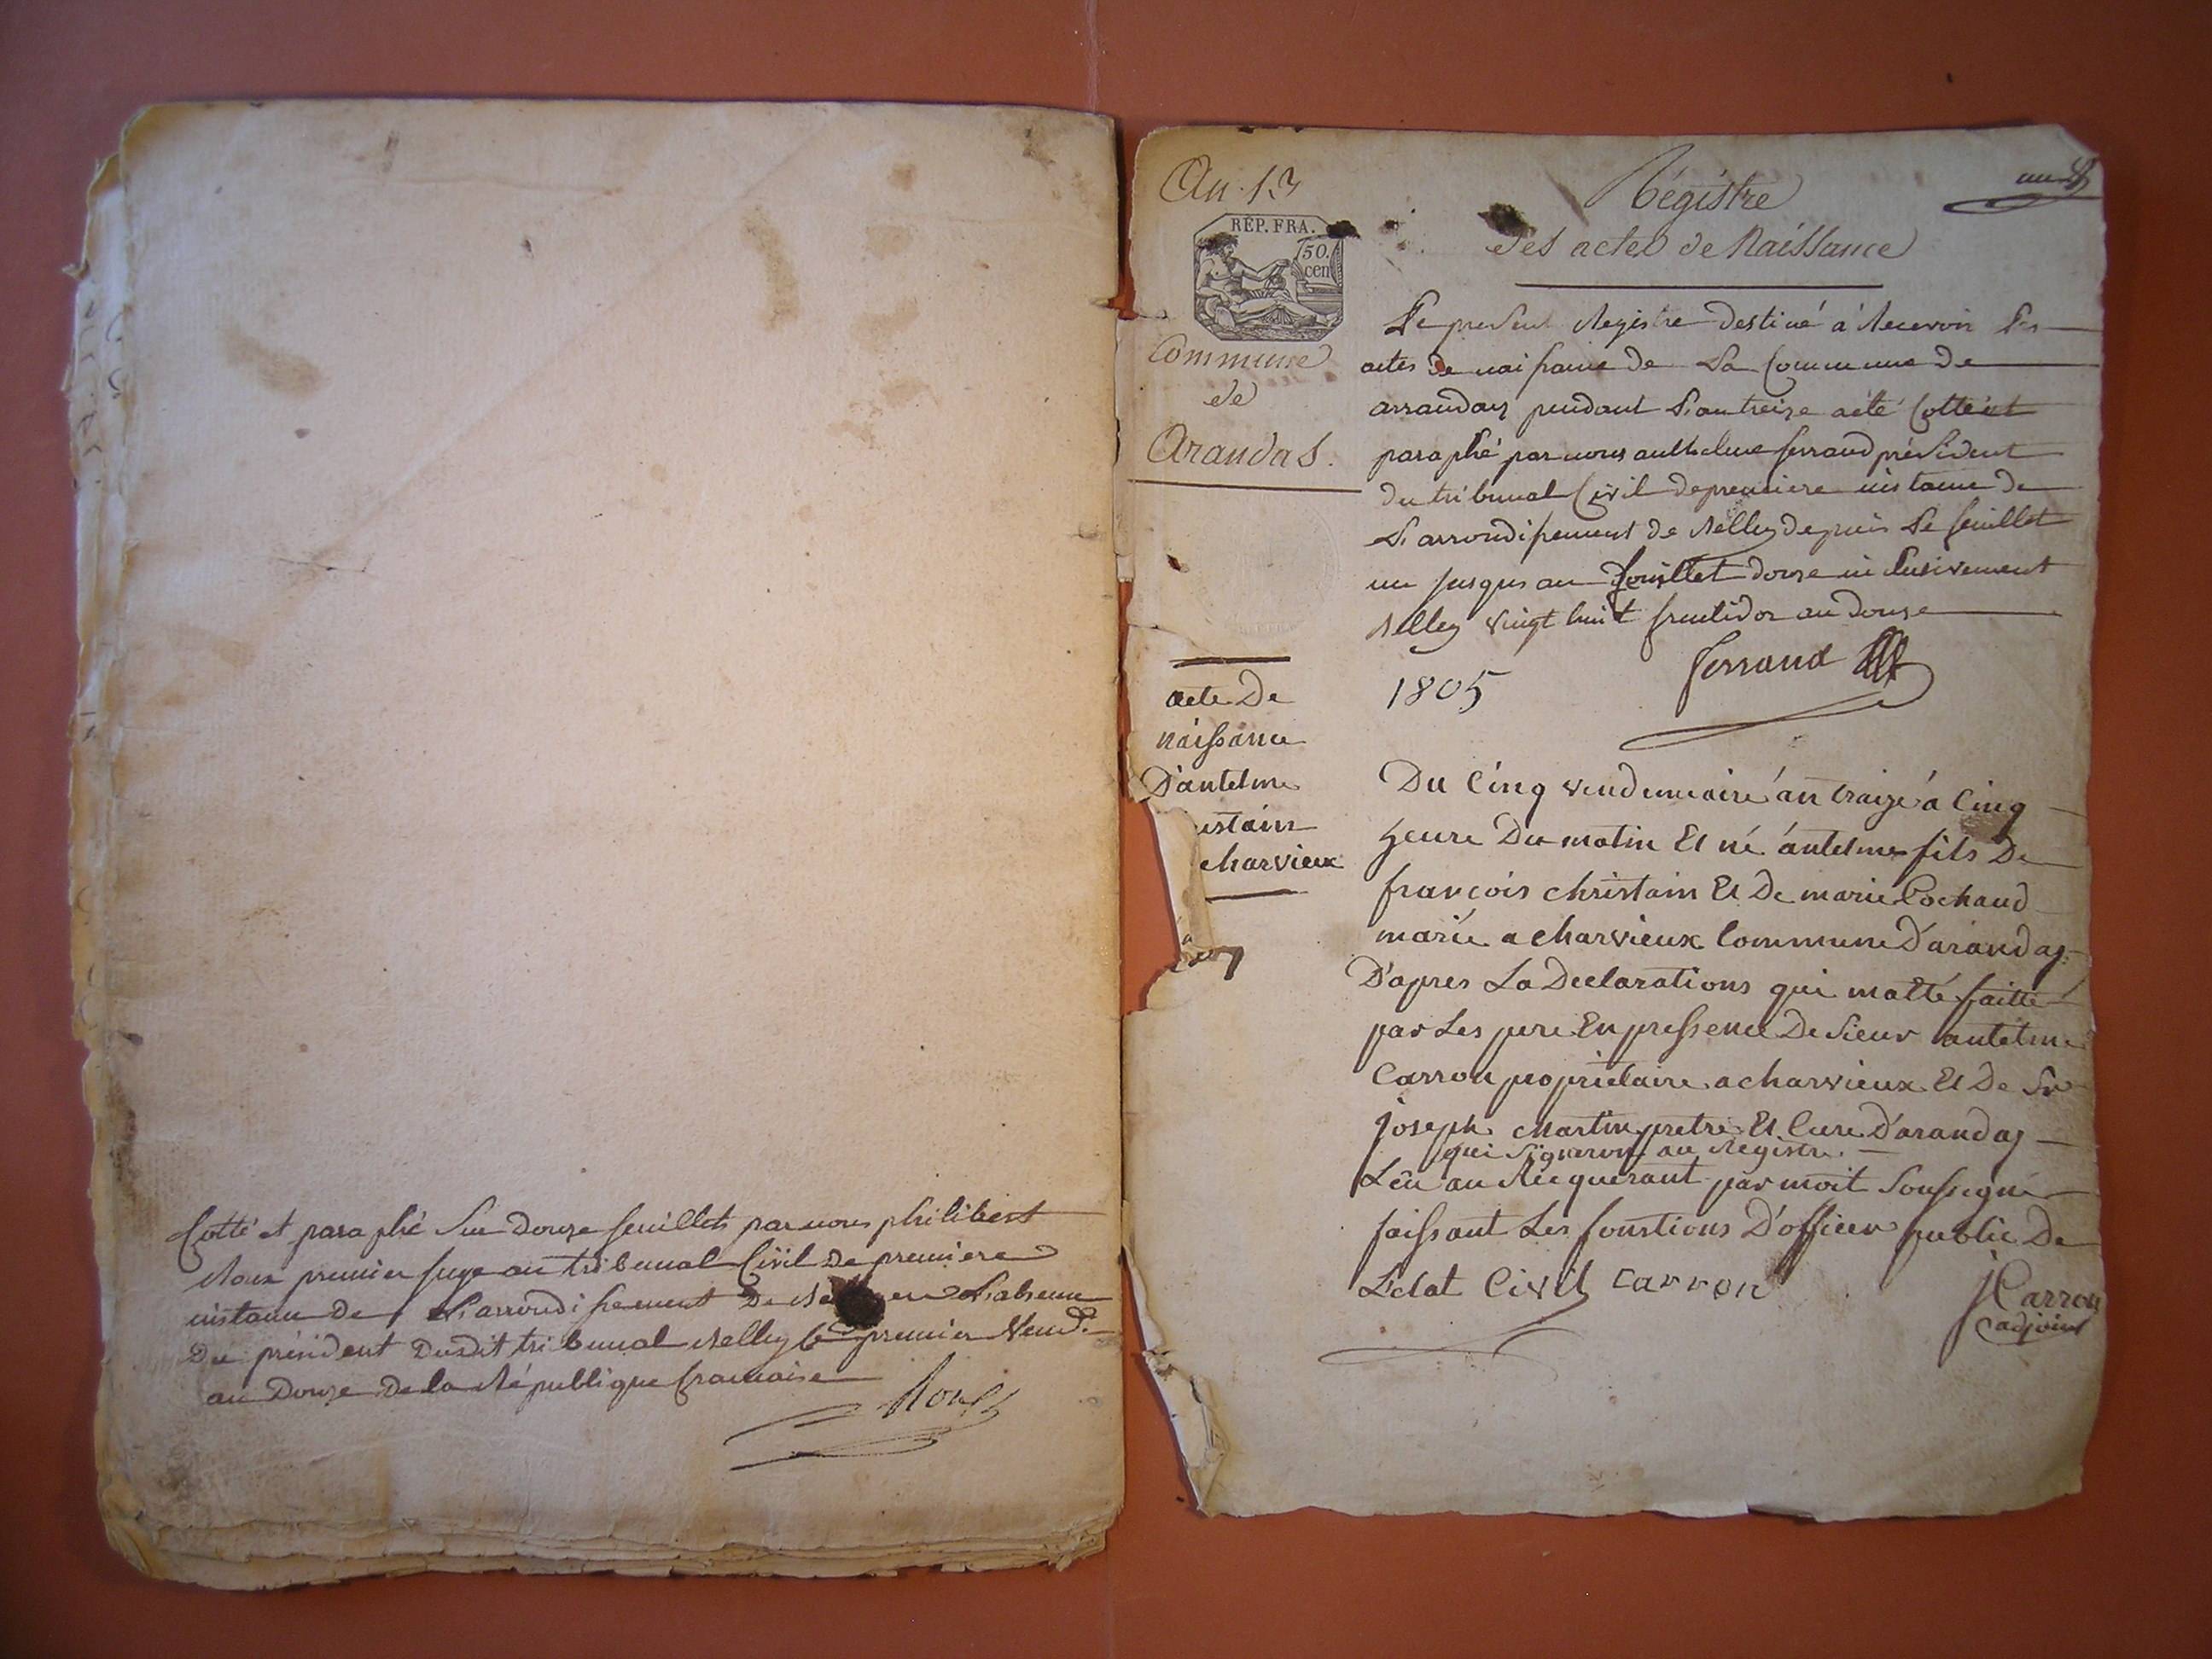 Cotté et paraphé sur douze feuillets par nous philibert
Roux premier juge au tribunal Civil de premiere
instance de L'arrondissement De en L'absence
Du président Dudit tribunal Belley le premier Vend.re
an Douze de la République francaise
Roux
An 13
REP. FRA.
50.
cen
Commune
de
Arandas.
un
Régistre
des actes de Naissance
Le present Registre destiné à Recevoir Les
actes de naissance de La Commune de
arrandas pendant L'an treize a été Cotté et
paraphé par nous anthelme ferrand président
du tribunal Civil de premiere instance de
L'arrondissement de Belley depuis Le feuillet
un jusques au feuillet douze inclusivement
Belley vingt huit fructidor an douze
ferrand
1805
acte De
naissance
D'antelme
istain
charvieux
Du Cinq vendemiaire án traize á Cinq
heure Du matin Et né ántelme fils De
francois christain Et De marie Cochaud
marié a charvieux Commune D'arandas
D'apres La Declarations qui matté faitte
par Les pere En pressence De sieur antelme
Carron propriétaire a charvieux Et De Sr
joseph Martin pretre Et Cure D'arandas
qui signeront au Registre.
Lëu au Recquerant par moit soussigné
faissant Les fonctions D'officier public De
L'etat Civil carron
JCarron
adjoint